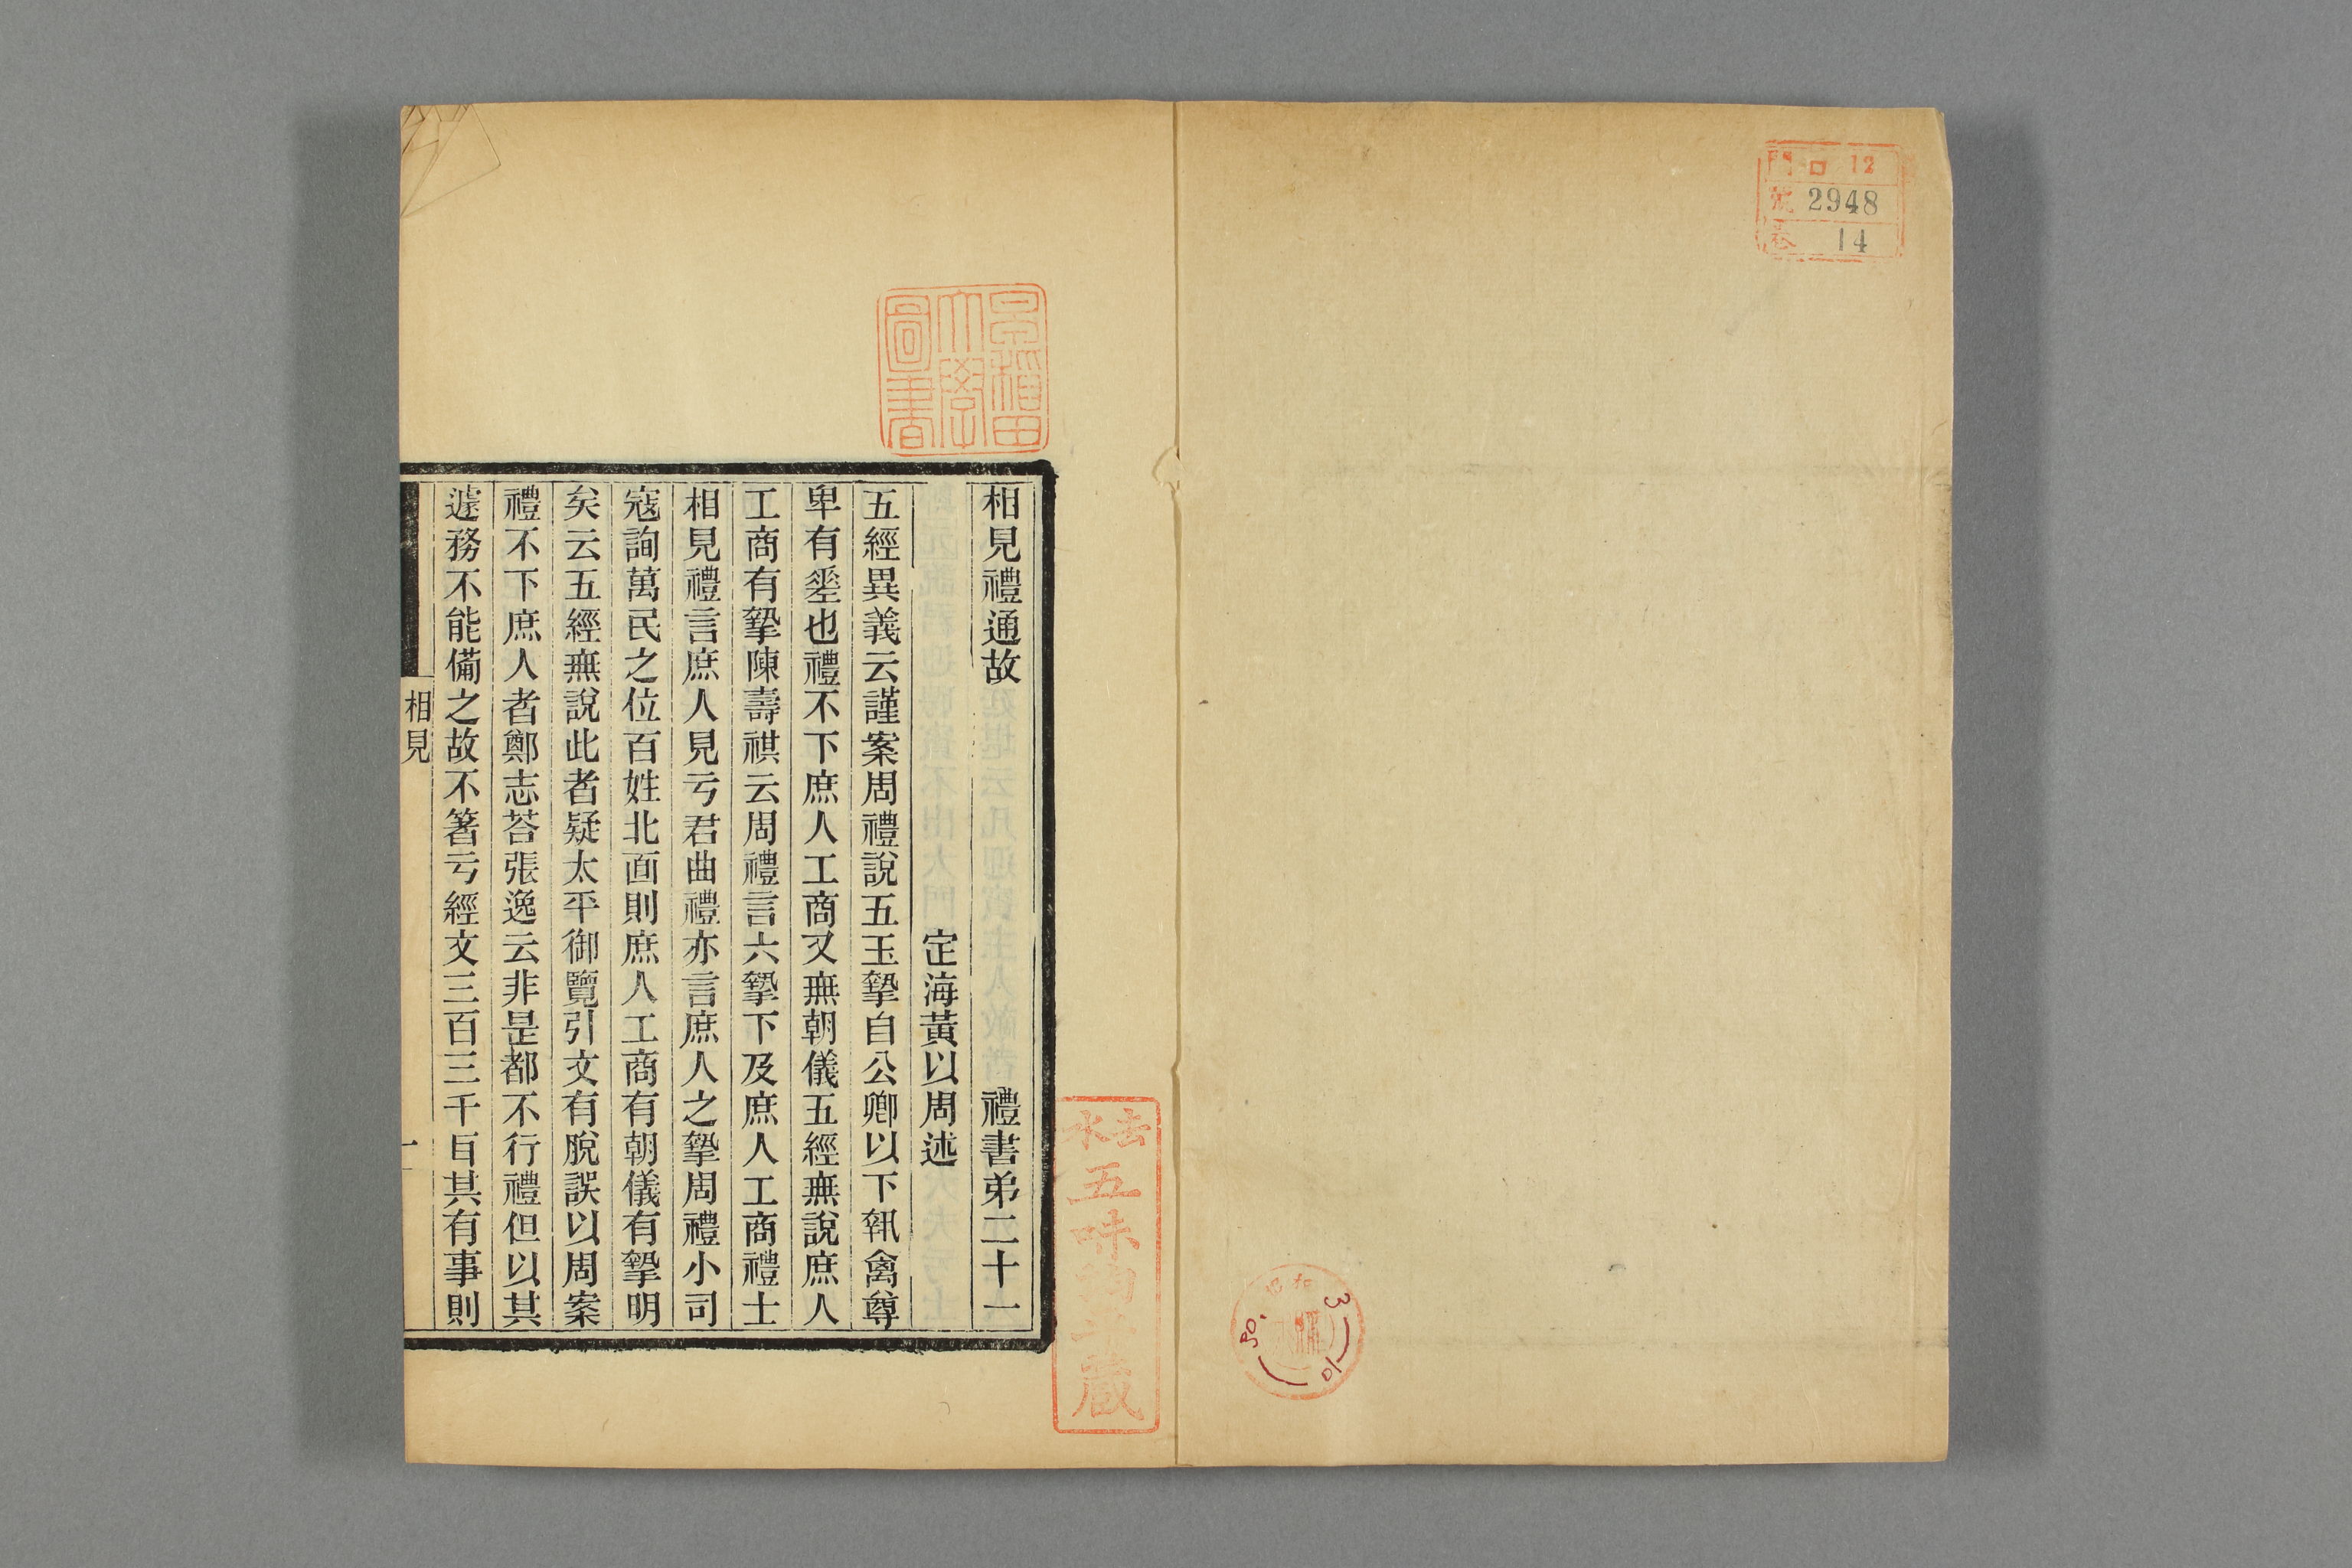 門 ロ 12
號 2948
卷 14
早稲田
大學
圖書
相見禮通故 禮書弟二十一
定海黃以周述
五經異義云謹案周禮說五玉摯自公卿以下執禽尊
卑有𢀩也禮不下庶人工商又無朝儀五經無說庶人
工商有摯陳壽祺云周禮言六摯下及庶人工商禮士
相見禮言庶人見亏君曲禮亦言庶人之摯周禮小司
寇詢萬民之位百姓北面則庶人工商有朝儀有摯明
矣云五經無說此者疑太平御覽引文有脫誤以周案
禮不下庶人者鄭志荅張逸云非是都不行禮但以其
遽務不能備之故不箸亏經文三百三千目其有事則
相見
一
五味
藏
昭和
3
10
30.